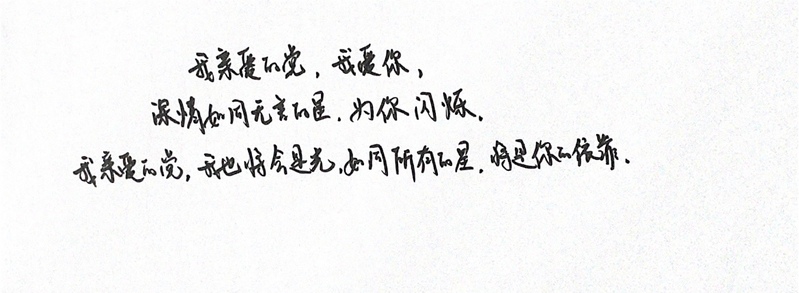 我亲爱的党，我爱你，
深情如同无言的星，为你闪烁。
我亲爱的党，我也将会是光，如同所有的星，将是你的依靠。